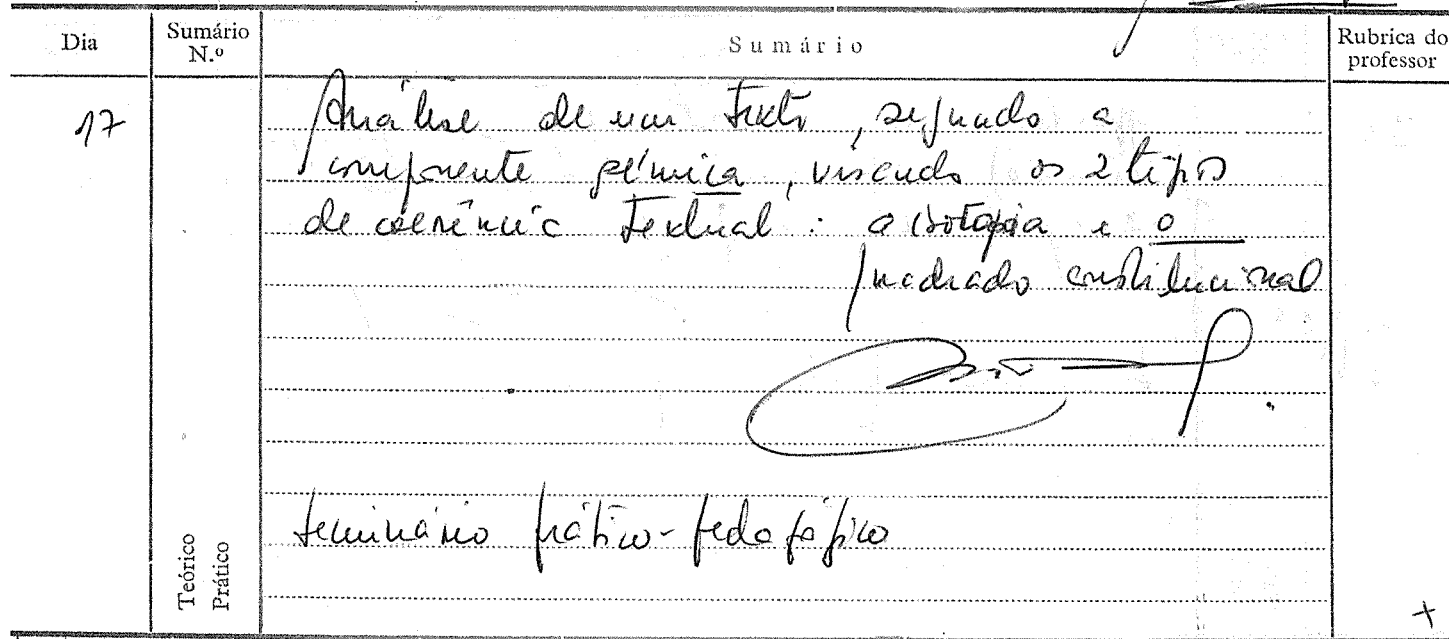 Dia
Sumário N.º
Sumário
Rubrica do professor
17
Análise de um texto, segundo a
componente sémica, visando os 2 tipos
de coerência textual: a isotopia e o
quadrado constitucional
Seminário prático-pedagógico
Teórico
Prático
+